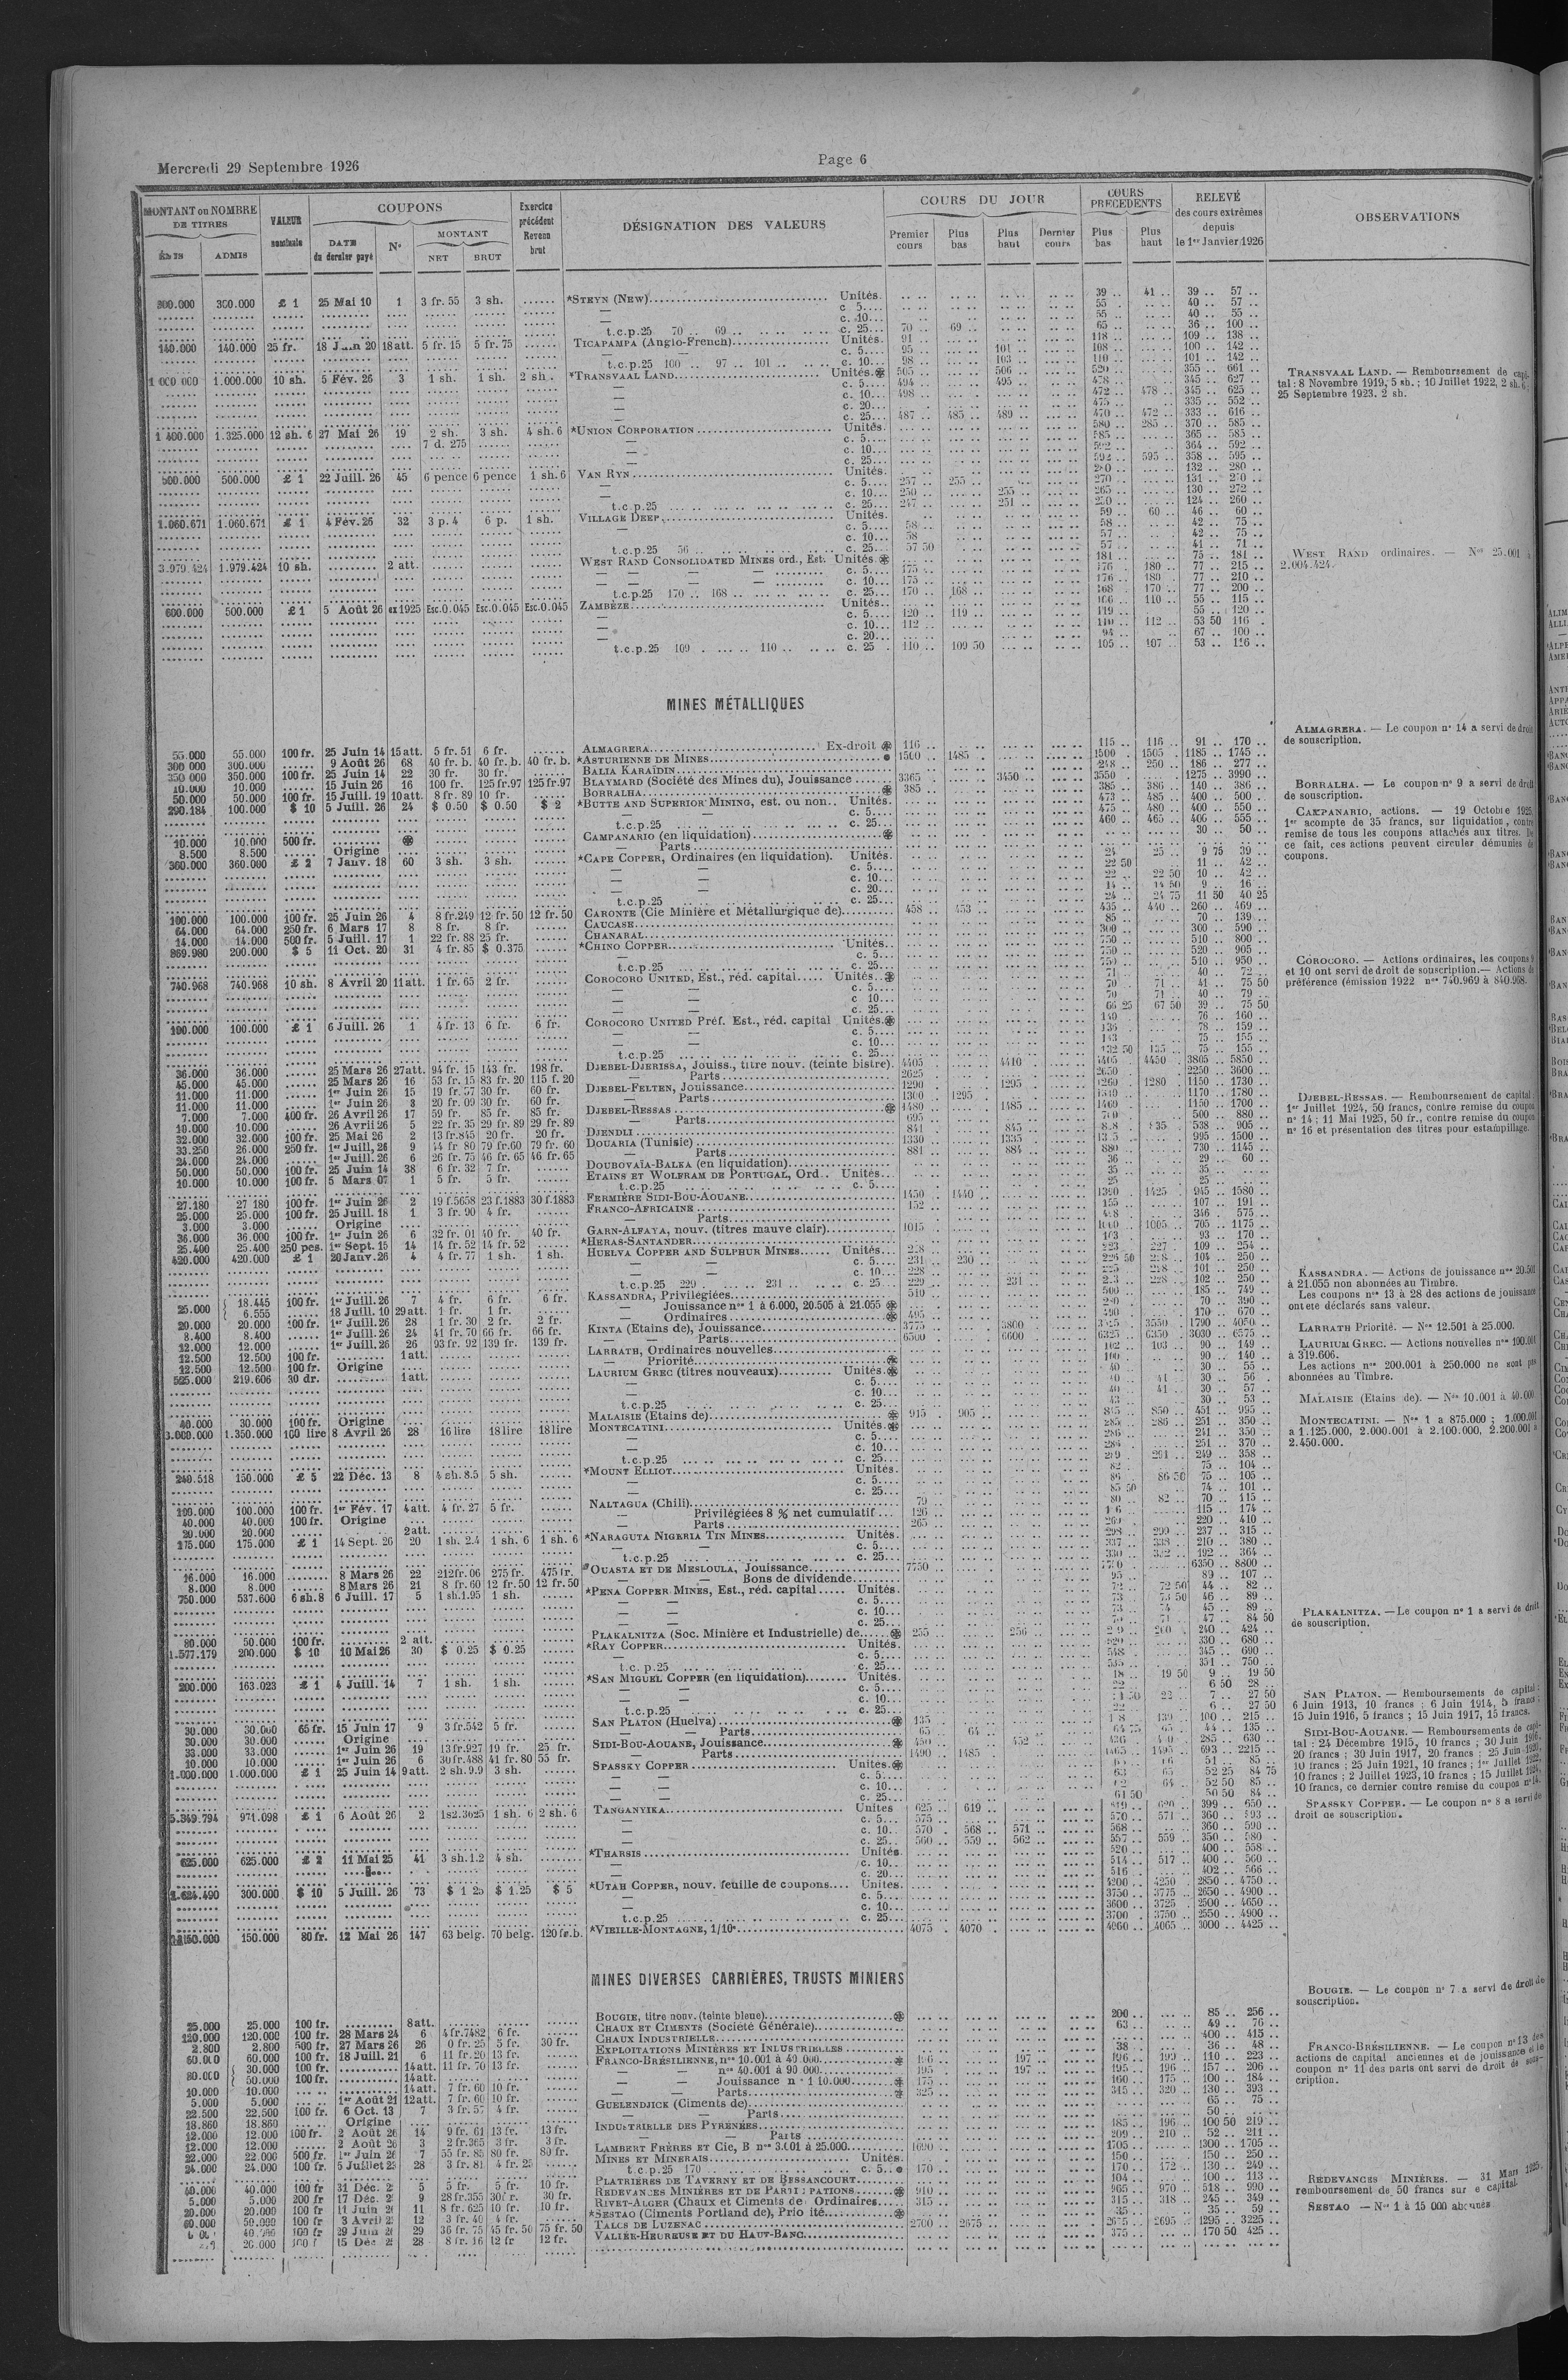 Mercredi 29 Septembre 1926
Page 6
MONTANT ou NOMBRE DE TITRES
ADMIS
VALEUR nominale
COUPONS
DATE du dernier payé
N°
MONTANT
NET
BRUT
Exercice précédent Revenu brut
DÉSIGNATION DES VALEURS
COURS DU JOUR
Premier cours
Plus bas
Plus haut
Dernier cours
COURS PRÉCÉDENTS
Plus bas
Plus haut
RELEVÉ des cours extrêmes depuis le 1er Janvier 1926
OBSERVATIONS
300.000 £ 1 25 Mai 10 1 3 fr. 55 3 sh. *STEYN (NEW) Unités. 39 .. 41 .. 39 .. 57 ..
— c. 5 55 .. 40 .. 57 ..
— c. 10 55 .. 40 .. 55 ..
t.c.p.25 70 .. 69 .. c. 25 70 .. 69 .. 65 .. 36 .. 100 ..
140.000 140.000 25 fr. 18 Juin 20 18 att. 5 fr. 15 5 fr. 75 TICAPAMPA (Anglo-French) Unités. 91 .. 118 .. 109 .. 138 ..
— c. 5 95 .. 101 .. 108 .. 100 .. 142 ..
t.c.p.25 100 .. 97 .. 101 .. c. 10 98 .. 103 .. 110 .. 101 .. 142 ..
1.000.000 1.000.000 10 sh. 5 Fév. 26 3 1 sh. 1 sh. 2 sh. *TRANSVAAL LAND Unités. 505 .. 506 .. 520 .. 355 .. 661 ..
— c. 5 494 .. 495 .. 478 .. 345 .. 627 ..
— c. 10 498 .. 472 .. 478 .. 345 .. 625 ..
— c. 20 475 .. 335 .. 552 ..
— c. 25 487 .. 485 .. 489 .. 470 .. 472 .. 333 .. 616 ..
1.400.000 1.325.000 12 sh. 6 27 Mai 26 19 2 sh. 7 d. 275 3 sh. 4 sh. 6 *UNION CORPORATION Unités. 580 .. 285 .. 370 .. 585 ..
— c. 5 585 .. 365 .. 585 ..
— c. 10 592 .. 364 .. 592 ..
— c. 25 592 .. 595 .. 358 .. 595 ..
500.000 500.000 £ 1 22 Juill. 26 45 6 pence 6 pence 1 sh. 6 VAN RYN Unités. 280 .. 132 .. 280 ..
— c. 5 257 .. 255 .. 270 .. 131 .. 270 ..
— c. 10 250 .. 255 .. 265 .. 130 .. 272 ..
t.c.p.25 c. 25 247 .. 251 .. 250 .. 124 .. 260 ..
1.060.671 1.060.671 £ 1 4 Fév. 26 32 3 p. 4 6 p. 1 sh. VILLAGE DEEP Unités. 59 .. 60 .. 46 .. 60 ..
— c. 5 58 .. 58 .. 42 .. 75 ..
— c. 10 58 57 .. 42 .. 75 ..
t.c.p.25 56 .. c. 25 57 50 57 .. 41 .. 71 ..
3.979.424 1.979.424 10 sh. 2 att. WEST RAND CONSOLIDATED MINES ord., Est. Unités 181 .. 75 .. 181 ..
— c. 5 175 .. 176 .. 180 .. 77 .. 215 ..
— c. 10 175 .. 176 .. 180 .. 77 .. 210 ..
t.c.p.25 170 .. 168 .. c. 25 170 .. 168 .. 168 .. 170 .. 77 .. 200 ..
600.000 500.000 £ 1 5 Août 26 ex 1925 Esc. 0.045 Esc. 0.045 Esc. 0.045 ZAMBÈZE Unités. 106 .. 110 .. 55 .. 115 ..
— c. 5 120 .. 119 .. 119 .. 55 .. 120 ..
— c. 10 112 .. 110 .. 112 .. 53 50 116 .
— c. 20 94 .. 67 .. 100 ..
t.c.p.25 109 . 110 .. c. 25 110 .. 109 50 105 .. 107 .. 53 .. 116 ..
TRANSVAAL LAND. — Remboursement de capi-
tal : 8 Novembre 1919, 5 sh. ; 10 Juillet 1922, 2 sh. 6 ;
25 Septembre 1923. 2 sh.
WEST RAND ordinaires. — Nos 25.001 à
2.004.424.
MINES MÉTALLIQUES
55.000 55.000 100 fr. 25 Juin 14 15 att. 5 fr. 51 6 fr. ALMAGRERA Ex-droit 116 .. 115 .. 116 .. 91 .. 170 ..
300.000 300.000 9 Août 26 68 40 fr. b. 40 fr. b. 40 fr. b. *ASTURIENNE DE MINES 1500 .. 1485 .. 1500 .. 1505 .. 1185 .. 1745 ..
350.000 350.000 100 fr. 25 Juin 14 22 30 fr. 30 fr. BALIA KARAÏDIN 248 .. 250 .. 186 .. 277 ..
10.000 10.000 15 Juin 26 16 100 fr. 125 fr. 97 125 fr. 97 BLAYMARD (Société des Mines du), Jouissance 3365 .. 3450 .. 3550 .. 1275 .. 3990 ..
50.000 50.000 100 fr. 15 Juill. 19 10 att. 8 fr. 89 10 fr. BORRALHA 385 .. 385 .. 386 .. 140 .. 386 ..
290.184 100.000 $ 10 5 Juill. 26 24 $ 0.50 $ 0.50 $ 2 *BUTTE AND SUPERIOR MINING, est. ou non Unités. 473 .. 485 .. 400 .. 500 ..
— c. 5 475 .. 480 .. 400 .. 550 ..
t.c.p.25 c. 25 460 .. 465 .. 406 .. 555 ..
10.000 10.000 500 fr. CAMPANARIO (en liquidation) 30 .. 50 ..
8.500 8.500 Origine — Parts
360.000 360.000 £ 2 7 Janv. 18 60 3 sh. 3 sh. *CAPE COPPER, Ordinaires (en liquidation). Unités. 24 .. 25 .. 9 75 39 ..
— c. 5 22 50 11 .. 42 ..
— c. 10 22 .. 22 50 10 .. 42 ..
— c. 20 14 .. 14 50 9 .. 16 ..
t.c.p.25 c. 25 24 .. 24 75 11 50 40 25
100.000 100.000 100 fr. 25 Juin 26 4 8 fr. 249 12 fr. 50 12 fr. 50 CARONTE (Cie Minière et Métallurgique de) 458 .. 453 .. 435 .. 440 .. 260 .. 469 ..
64.000 64.000 250 fr. 6 Mars 17 8 8 fr. 8 fr. CAUCASE 85 .. 70 .. 139 ..
14.000 14.000 500 fr. 5 Juill. 17 1 22 fr. 88 25 fr. CHANARAL 300 .. 300 .. 590 ..
869.980 200.000 $ 5 11 Oct. 20 31 4 fr. 85 $ 0.375 *CHINO COPPER Unités. 750 .. 510 .. 800 ..
— c. 5 750 .. 520 .. 905 ..
t.c.p.25 c. 25 750 .. 510 .. 950 ..
740.968 740.968 10 sh. 8 Avril 20 11 att. 1 fr. 65 2 fr. COROCORO UNITED, Est., réd. capital Unités. 71 40 .. 72 ..
— c. 5 70 .. 71 .. 41 .. 75 50
— c 10 70 71 .. 40 .. 79 ..
— c. 25 66 25 67 50 39 .. 75 50
100.000 100.000 £ 1 6 Juill. 26 1 4 fr. 13 6 fr. 6 fr. COROCORO UNITED Préf. Est., réd. capital Unités. 76 .. 160 ..
— c. 5 136 78 .. 159 ..
— c. 10 143 75 .. 155 ..
t.c.p.25 c. 25 132 50 135 .. 75 .. 155 ..
36.000 36.000 25 Mars 26 27 att. 94 fr. 15 143 fr. 198 fr. DJEBEL-DJERISSA, Jouiss., titre nouv. (teinte bistre). 4405 .. 4410 .. 4405 .. 4450 .. 3805 .. 5850 ..
45.000 45.000 25 Mars 26 16 53 fr. 15 83 fr. 20 115 f. 20 — Parts 2625 .. 2650 2250 .. 3600 ..
11.000 11.000 1er Juin 26 15 19 fr. 57 30 fr. 60 fr. DJEBEL-FELTEN, Jouissance 1290 1295 .. 1260 .. 1280 . 1150 .. 1730 ..
11.000 11.000 1er Juin 26 3 20 fr. 09 30 fr. 60 fr. — Parts 1300 .. 1295 .. 1170 .. 1780 ..
7.000 7.000 400 fr. 26 Avril 26 17 59 fr. 85 fr. 85 fr. DJEBEL-RESSAS 1480 .. 1485 .. 1150 .. 1700 ..
10.000 10.000 26 Avril 26 5 22 fr. 35 29 fr. 89 29 fr. 89 — Parts 695 .. 500 .. 880 ..
32.000 32.000 100 fr. 25 Mai 26 2 13 fr. 845 20 fr. 20 fr. DJENDLI 841 .. 845 .. 538 .. 905 ..
33.250 26.000 250 fr. 1er Juill. 26 9 44 fr. 80 79 fr. 60 79 fr. 60 DOUARIA (Tunisie) 1330 .. 1335 995 .. 1500 ..
24.000 24.000 1er Juill. 26 6 26 fr. 75 46 fr. 65 46 fr. 65 — Parts 881 .. 884 .. 880 .. 730 .. 1145 ..
50.000 50.000 100 fr. 25 Juin 14 38 6 fr. 32 7 fr. DOUBOVAÏA-BALKA (en liquidation) 36 .. 29 .. 60 ..
10.000 10.000 100 fr. 5 Mars 07 1 5 fr. 5 fr. ETAINS ET WOLFRAM DE PORTUGAL, Ord. Unités 35 .. 35 ..
t.c.p.25 c. 5 25 25 ..
27.180 27 180 100 fr. 1er Juin 26 2 19 f.5658 23 f.1883 30 f.1883 FERMIÈRE SIDI-BOU-AOUANE 1450 1440 .. 1390 . 1425 . 945 .. 1580 ..
25.000 25.000 100 fr. 25 Juill. 18 1 3 fr. 90 4 fr. FRANCO-AFRICAINE 152 .. 155 .. 107 .. 191 ..
3.000 3.000 Origine — Parts 346 .. 575 ..
36.000 36.000 100 fr. 1er Juin 26 6 32 fr. 01 40 fr. 40 fr. GARN-ALFAYA, nouv. (titres mauve clair) 1015 1005 .. 705 .. 1175 ..
25.400 25.400 250 pes. 1er Sept. 15 14 14 fr. 52 14 fr. 52 *HERAS-SANTANDER 103 93 .. 170 ..
420.000 420.000 £ 1 20 Janv. 26 4 4 fr. 77 1 sh. 1 sh. HUELVA COPPER AND SULPHUR MINES Unités 228 223 .. 227 . 109 .. 254 ..
— c. 5 231 .. 230 .. 226 50 228 .. 104 .. 250 ..
— c. 10 228 228 .. 101 .. 250 ..
t.c.p.25 229 .. 231 .. c. 25 229 .. 231 .. 228 .. 102 .. 250 ..
25.000 18.445 100 fr. 1er Juill. 26 7 4 fr. 6 fr. 6 fr. KASSANDRA, Privilégiées 510 185 .. 749 ..
6.555 18 Juill. 10 29 att. 1 fr. 1 fr. — Jouissance nos 1 à 6.000, 20.505 à 21.055 70 .. 390 ..
20.000 20.000 100 fr. 1er Juill. 26 28 1 fr. 30 2 fr. 2 fr. — Ordinaires 495 .. 170 .. 670 ..
8.400 8.400 1er Juill. 26 24 41 fr. 70 66 fr. 66 fr. KINTA (Etains de), Jouissance 3775 .. 3800 .. 3550 .. 1790 .. 4050 ..
12.000 12.000 1er Juill. 26 26 93 fr. 92 139 fr. 139 fr. — Parts 6500 .. 6600 .. 6325 .. 6350 .. 3030 .. 6575 ..
12.500 12.500 100 fr. 1 att. LARRATH, Ordinaires nouvelles 102 103 .. 90 .. 149 ..
12.500 12.500 100 fr. Origine — Priorité 100 90 .. 140 ..
525.000 219.606 30 dr. 1 att. LAURIUM GREC (titres nouveaux) Unités 40 30 .. 55 ..
— c. 5 40 .. 41 .. 30 .. 56 .
— c. 10 40 .. 41 .. 30 .. 57 ..
t.c.p.25 c. 25 43 .. 30 .. 53 ..
40.000 30.000 100 fr. Origine MALAISIE (Etains de) 915 . 905 .. 850 .. 451 .. 965 ..
3.000.000 1.350.000 100 lire 8 Avril 26 28 16 lire 18 lire 18 lire MONTECATINI Unités. 285 .. 286 .. 251 .. 350 ..
— c. 5 286 .. 241 .. 350 ..
— c. 10 284 .. 251 .. 370 ..
t.c.p.25 c. 25 289 .. 291 .. 249 .. 358 ..
240.518 150.000 £ 5 22 Déc. 13 8 4 sh. 8.5 5 sh. *MOUNT ELLIOT Unités. 82 .. 75 .. 104 ..
— c. 5 86 86 50 75 .. 105 ..
— c. 25 85 50 74 .. 101 ..
100.000 100.000 100 fr. 1er Fév. 17 4 att. 4 fr. 27 5 fr. NALTAGUA (Chili) 79 .. 80 .. 82 .. 70 .. 115 ..
40.000 40.000 100 fr. Origine — Privilégiées 8 % net cumulatif 126 115 .. 174 ..
20.000 20.000 2 att. — Parts 265 .. 260 .. 220 .. 410 ..
175.000 175.000 £ 1 14 Sept. 26 20 1 sh. 2.4 1 sh. 6 1 sh. 6 *NARAGUTA NIGERIA TIN MINES Unités. 298 .. 299 .. 237 .. 315 ..
— c. 5 337 .. 338 .. 210 .. 380 ..
t.c.p.25 c. 25 330 .. 332 .. 192 .. 364 ..
16.000 16.000 8 Mars 26 22 212 fr. 06 275 fr. 475 fr. OUASTA ET DE MESLOULA, Jouissance 7750 6350 .. 8800 ..
8.000 8.000 8 Mars 26 21 8 fr. 60 12 fr. 50 12 fr. 50 — Bons de dividende 95 .. 89 .. 107 ..
750.000 537.600 6 sh. 8 6 Juill. 17 5 1 sh. 1.95 1 sh. *PENA COPPER MINES, Est., réd. capital Unités. 72 .. 72 50 44 .. 82 ..
— c. 5 73 73 50 46 .. 89 ..
— c. 10 73 .. 74 45 .. 89 ..
— c. 25 70 .. 71 .. 47 .. 84 50
80.000 50.000 100 fr. 2 att. PLAKALNITZA (Soc. Minière et Industrielle) de 255 .. 256 .. 260 .. 240 .. 424 ..
1.577.179 200.000 $ 10 10 Mai 26 30 $ 0.25 $ 0.25 *RAY COPPER Unités. 520 330 .. 680 ..
— c. 5 548 345 .. 690 ..
t.c.p.25 c. 25 535 351 .. 750 ..
200.000 163.023 £ 1 4 Juill. 14 7 1 sh. 1 sh. *SAN MIGUEL COPPER (en liquidation) Unités. 18 19 50 9 .. 19 50
— c. 5 22 .. 6 50 28 ..
— c. 10 22 .. 7 .. 27 50
t.c.p.25 c. 25 6 .. 27 50
30.000 30.000 65 fr. 15 Juin 17 9 3 fr. 542 5 fr. SAN PLATON (Huelva) 135 .. 139 .. 100 .. 215 ..
30.000 30.000 Origine — Parts 65 64 .. 64 75 65 .. 44 .. 135 ..
33.000 33.000 1er Juin 26 19 13 fr. 927 19 fr. 25 fr. SIDI-BOU-AOUANE, Jouissance 450 .. 452 .. 285 .. 630 ..
10.000 10.000 1er Juin 26 6 30 fr. 488 41 fr. 80 55 fr. — Parts 1490 .. 1485 .. 1465 .. 1495 .. 693 .. 2215 ..
1.000.000 1.000.000 £ 1 25 Juin 14 9 att. 2 sh. 9.9 3 sh. SPASSKY COPPER Unités. 66 51 .. 85 ..
— c. 5 63 65 52 25 84 75
— c. 10 62 64 .. 52 50 85 ..
— c. 25 61 50 50 50 84 ..
5.349.794 971.098 £ 1 6 Août 26 2 1s2.3625 1 sh. 6 2 sh. 6 TANGANYIKA Unités 625 .. 619 .. 619 .. 620 .. 399 .. 650 ..
— c. 5 575 .. 570 .. 571 .. 360 .. 593 ..
— c. 10 570 .. 568 .. 571 .. 568 .. 360 .. 590 ..
— c. 25 560 .. 559 .. 562 .. 557 .. 559 .. 350 .. 580 .
625.000 625.000 £ 2 11 Mai 25 41 3 sh. 1.2 4 sh. *THARSIS Unités 520 .. 400 .. 558 ..
— c. 10 514 .. 517 .. 400 .. 560 ..
— c. 20 516 . 402 .. 566 ..
1.624.490 300.000 $ 10 5 Juill. 26 73 $ 1 25 $ 1.25 $ 5 *UTAH COPPER, nouv. feuille de coupons Unités. 4200 .. 4250 .. 2850 .. 4750 ..
— c. 5 3750 .. 3775 .. 2650 .. 4900 ..
— c. 10 3600 .. 3725 .. 2500 .. 4650 ..
t.c.p.25 c. 25 3700 .. 3750 .. 2550 .. 4900 ..
150.000 80 fr. 12 Mai 26 147 63 belg. 70 belg. 120 fr. b. *VIEILLE-MONTAGNE, 1/10e 4075 . 4070 .. 4060 .. 4065 .. 3000 .. 4425 ..
ALMAGRERA. — Le coupon n° 14 a servi de droit
de souscription.
BORRALHA. — Le coupon n° 9 a servi de droit
de souscription.
CAMPANARIO, actions. — 19 Octobre 1925,
1er acompte de 35 francs, sur liquidation, contre
remise de tous les coupons attachés aux titres. De
ce fait, ces actions peuvent circuler démunies de
coupons.
COROCORO. — Actions ordinaires, les coupons 9
et 10 ont servi de droit de souscription. — Actions de
préférence (émission 1922 nos 740.969 à 840.968.
DJEBEL-RESSAS. — Remboursement de capital :
1er Juillet 1924, 50 francs, contre remise du coupon
n° 14 ; 11 Mai 1925, 50 fr., contre remise du coupon
n° 16 et présentation des titres pour estampillage.
KASSANDRA. — Actions de jouissance nos 20.501
à 21.055 non abonnées au Timbre.
Les coupons nos 13 à 28 des actions de jouissance
ont été déclarés sans valeur.
LARRATH Priorité. — Nos 12.501 à 25.000.
LAURIUM GREC. — Actions nouvelles nos 100.001
à 319.606.
Les actions nos 200.001 à 250.000 ne sont pas
abonnées au Timbre.
MALAISIE (Etains de). — Nos 10.001 à 40.000.
MONTECATINI. — Nos 1 a 875.000 ; 1.000.001
à 1.125.000, 2.000.001 à 2.100.000, 2.200.001 à
2.450.000.
PLAKALNITZA. — Le coupon n° 1 a servi de droit
de souscription.
SAN PLATON. — Remboursements de capital :
6 Juin 1913, 10 francs ; 6 Juin 1914, 5 francs ;
15 Juin 1916, 5 francs ; 15 Juin 1917, 15 francs.
SIDI-BOU-AOUANE. — Remboursements de capi-
tal : 24 Décembre 1915, 10 francs ; 30 Juin 1916,
20 francs ; 30 Juin 1917, 20 francs ; 25 Juin 1920,
10 francs ; 25 Juin 1921, 10 francs ; 1er Juillet 1922,
10 francs ; 2 Juillet 1923, 10 francs ; 15 Juillet 1924,
10 francs, ce dernier contre remise du coupon n° 14.
SPASSKY COPPER. — Le coupon n° 8 a servi de
droit de souscription.
MINES DIVERSES CARRIÈRES, TRUSTS MINIERS
25.000 25.000 100 fr. 8 att. BOUGIE, titre nouv. (teinte bleue) 200 .. 85 .. 256 ..
120.000 120.000 100 fr. 28 Mars 24 6 4 fr. 7482 6 fr. CHAUX ET CIMENTS (Société Générale) 63 .. 49 .. 76 ..
2.800 2.800 500 fr. 27 Mars 26 26 0 fr. 25 5 fr. 30 fr. CHAUX INDUSTRIELLE 400 .. 415 ..
60.000 60.000 100 fr. 18 Juill. 21 6 11 fr. 20 13 fr. EXPLOITATIONS MINIÈRES ET INDUSTRIELLES 38 .. 36 .. 48 ..
80.000 30.000 100 fr. 14 att. 11 fr. 70 13 fr. FRANCO-BRÉSILIENNE, nos 10.001 à 40.000 196 .. 197 .. 196 .. 199 .. 110 .. 223 ..
50.000 100 fr. 14 att. — nos 40.001 à 90.000 195 .. 197 .. 195 .. 196 .. 157 .. 206 ..
10.000 10.000 14 att. 7 fr. 60 10 fr. — Jouissance n° 1 à 10.000 175 .. 160 .. 175 .. 100 .. 184 ..
5.000 5.000 1er Août 21 12 att. 7 fr. 60 10 fr. — Parts 325 .. 315 .. 320 .. 130 .. 393 ..
22.500 22.500 100 fr. 6 Oct. 13 7 3 fr. 57 4 fr. GUELENDJICK (Ciments de) 65 .. 75 ..
18.860 18.860 Origine — Parts 50 ..
12.000 12.000 100 fr. 2 Août 26 14 9 fr. 61 13 fr. 13 fr. INDUSTRIELLE DES PYRÉNÉES 185 .. 196 .. 100 50 219 ..
12.000 12.000 2 Août 26 3 2 fr. 365 3 fr. 3 fr. — Parts 209 .. 210 .. 52 .. 211 ..
22.000 22.000 500 fr. 1er Juin 26 7 55 fr. 85 80 fr. 80 fr. LAMBERT FRÈRES ET Cie, B nos 3.001 à 25.000 1690 .. 1705 .. 1300 .. 1705 ..
24.000 24.000 100 fr. 5 Juillet 23 28 3 fr. 81 4 fr. 25 MINES ET MINERAIS Unités. 150 .. 150 .. 250 ..
t.c.p.25 170 c. 5 170 .. 170 .. 172 .. 130 .. 249 ..
40.000 40.000 100 fr 31 Déc. 5 5 fr. 5 fr. 10 fr. PLATRIÈRES DE TAVERNY ET DE BESSANCOURT 104 .. 100 .. 113 ..
5.000 5.000 200 fr 17 Déc. 9 28 fr. 355 30 fr. 30 fr. REDEVANCES MINIÈRES ET DE PARTICIPATIONS 910 .. 965 .. 970 .. 518 .. 990 ..
20.000 20.000 100 fr 11 Juin 11 8 fr. 625 10 fr. 10 fr. RIVET-ALGER (Chaux et Ciments de) Ordinaires 315 .. 315 .. 318 .. 245 .. 349 ..
60.000 100 fr 3 Avril 12 3 fr. 40 4 fr. *SESTAO (Ciments Portland de), Priorité 35 .. 35 .. 59 ..
100 fr 29 Juin 29 36 fr. 75 45 fr. 50 75 fr. 50 TALCS DE LUZENAC 2700 .. 2675 .. 2675 .. 2695 .. 1295 .. 3225 ..
20.000 15 Déc 28 8 fr. 16 12 fr 12 fr. VALLÉE-HEUREUSE ET DU HAUT-BANC 375 .. 170 50 425 ..
BOUGIE. — Le coupon n° 7 a servi de droit de
souscription.
FRANCO-BRÉSILIENNE. — Le coupon n° 13 des
actions de capital anciennes et de jouissance et le
coupon n° 11 des parts ont servi de droit de sous-
cription.
REDEVANCES MINIÈRES. — 31 Mars 1925,
remboursement de 50 francs sur e capital.
SESTAO — Nos 1 à 15 000 abonnés